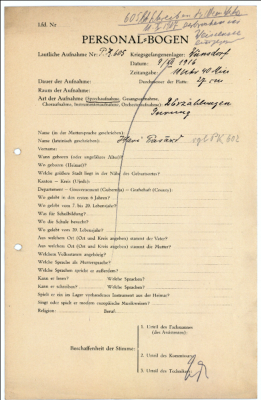 Lfd. Nr.
PERSONAL-BOGEN
Lautliche Aufnahme Nr.: PK 605
Kriegsgefangenenlager:
Datum: 1916
Zeitangabe: 11 Uhr 40 Min
Dauer der Aufnahme:
Durchmesser der Platte: 27 cm
Raum der Aufnahme:
Art der Aufnahme (Sprechaufnahme, Gesangsaufnahme, Choraufnahme, Instrumentenaufnahme, Orchesteraufnahme):
Name (in der Muttersprache geschrieben):
Name (lateinisch geschrieben): PK 602
Vorname:
Wann geboren (oder ungefähres Alter)?
Wo geboren (Heimat)?
Welche größere Stadt liegt in der Nähe des Geburtsortes?
Kanton — Kreis (Ujedz):
Departement — Gouvernement (Gubernija) — Grafschaft (County):
Wo gelebt in den ersten 6 Jahren?
Wo gelebt vom 7. bis 20. Lebensjahr?
Was für Schulbildung?
Wo die Schule besucht?
Wo gelebt vom 20. Lebensjahr?
Aus welchem Ort (Ort und Kreis angeben) stammt der Vater?
Aus welchem Ort (Ort und Kreis angeben) stammt die Mutter?
Welchem Volksstamm angehörig?
Welche Sprache als Muttersprache?
Welche Sprachen spricht er außerdem?
Kann er lesen? Welche Sprachen?
Kann er schreiben? Welche Sprachen?
Spielt er ein im Lager vorhandenes Instrument aus der Heimat?
Singt oder spielt er moderne europäische Musikweisen?
Religion: Beruf:
Beschaffenheit der Stimme:
1. Urteil des Fachmannes
(des Assistenten):
2. Urteil des Kommissars:
3. Urteil des Technikers: